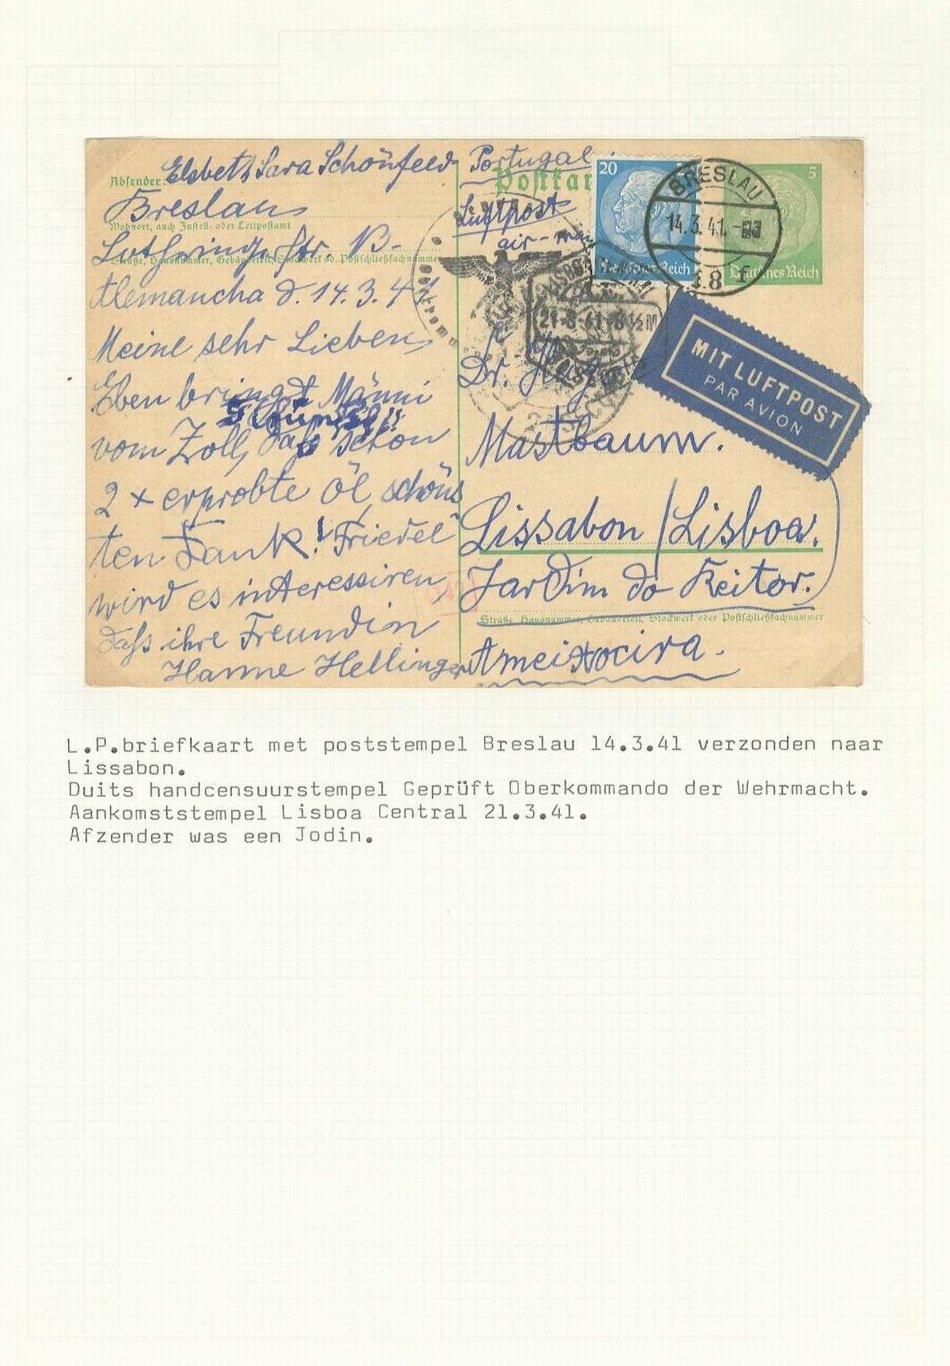 Absender: Elsbeth Sara Schönfeld
Breslau
Wohnort, auch Zustell- oder Leitpostamt
Str.
Straße, Hausnummer, Gebäudeteil, Stockwerk od. Postschließfachnummer
Alemancha d. 14.3.41
Meine sehr Lieben,
Eben bringt Männi
vom Zoll, daß schon
2 x erprobte Öl, schöns
ten Dank! Friedel
wird es interessiren
daß ihre Freundin
Hanne Hellinger
Portugal
Postkar
Luftpost
air-
20
Deutsches Reich
5
Deutsches Reich
BRESLAU
14.3.41.
8
LISBOA
21-3-41-8½M
MIT LUFTPOST
PAR AVION
Dr.
Mastbaum.
Lissabon / Lisboa.
Jardim do Reitor.
Straße, Hausnummer, Gebäudeteil, Stockwerk oder Postschließfachnummer
Ameixocira.
L.P.briefkaart met poststempel Breslau 14.3.41 verzonden naar
Lissabon.
Duits handcensuurstempel Geprüft Oberkommando der Wehrmacht.
Aankomststempel Lisboa Central 21.3.41.
Afzender was een Jodin.